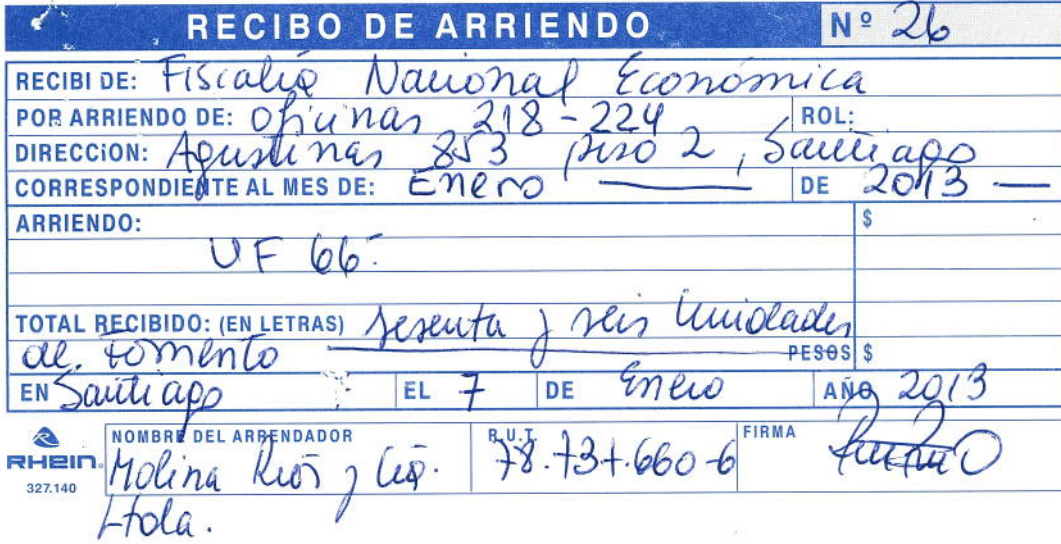 RECIBO DE ARRIENDO Nº 26
RECIBI DE: Fiscalía Nacional Económica
POR ARRIENDO DE: Oficinas 218-224 ROL:
DIRECCION: Agustinas 853 piso 2, Santiago
CORRESPONDIENTE AL MES DE: Enero DE 2013
ARRIENDO: $
UF 66.-
TOTAL RECIBIDO: (EN LETRAS) Sesenta y seis Unidades
de Fomento PESOS $
EN Santiago EL 7 DE Enero AÑO 2013
RHEIN. NOMBRE DEL ARRENDADOR R.U.T. FIRMA
327.140 Molina Ríos y Cía. 78.737.660-6
Ltda.